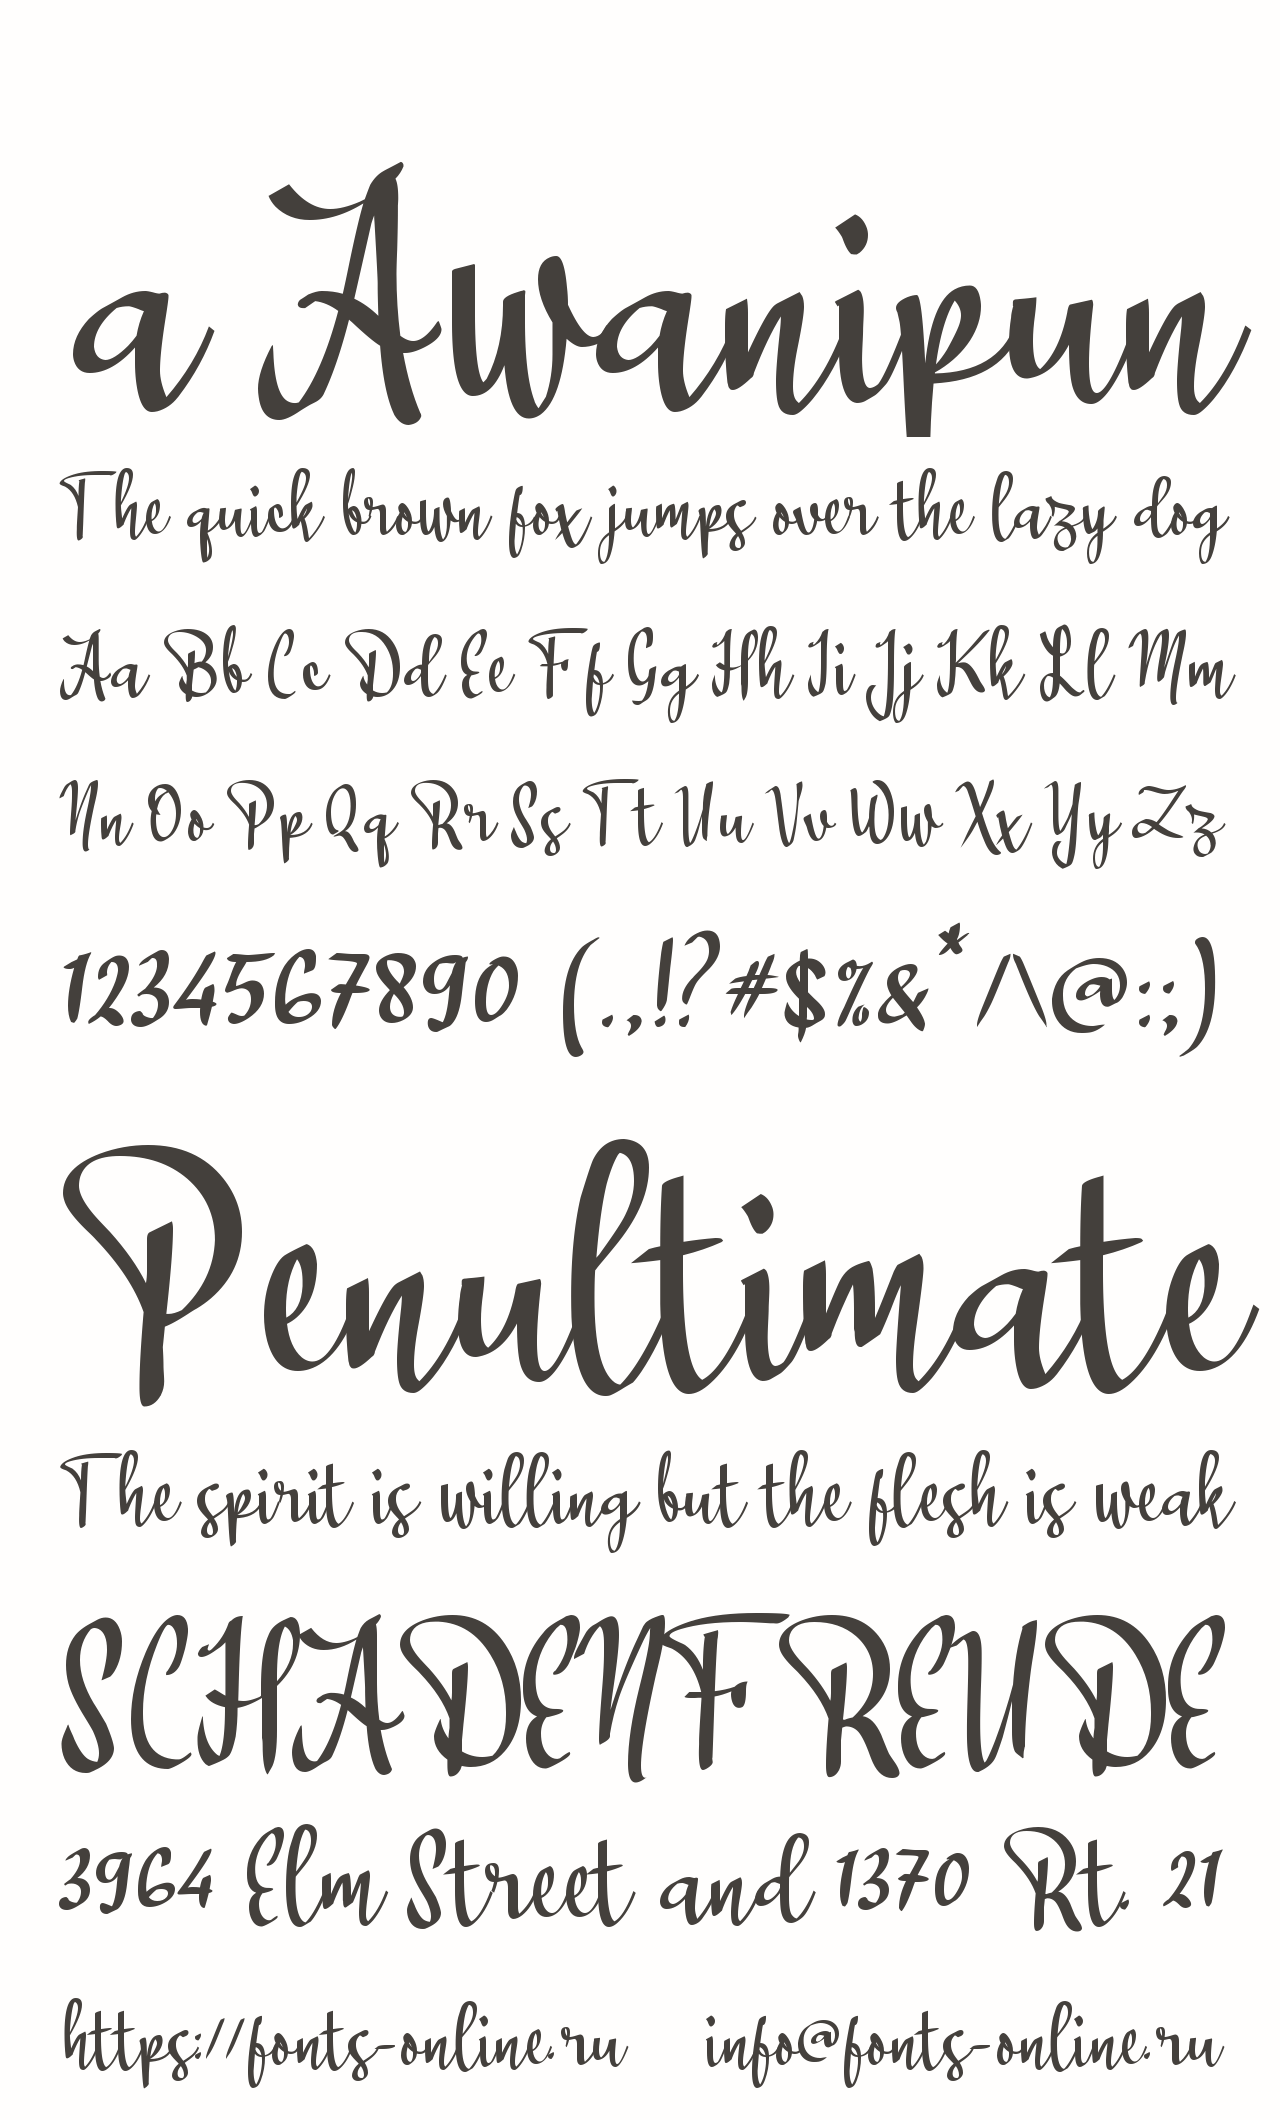 a Awanipun
The quick brown fox jumps over the lazy dog
Aa Bb Cc Dd Ee Ff Gg Hh Ii Jj Kk Ll Mm
Nn Oo Pp Qq Rr Ss Tt Uu Vv Ww Xx Yy Zz
1234567890 (.,!?#$%&*/\@:;)
Penultimate
The spirit is willing but the flesh is weak
SCHADENFREUDE
3964 Elm Street and 1370 Rt. 21
https://fonts-online.ru info@fonts-online.ru